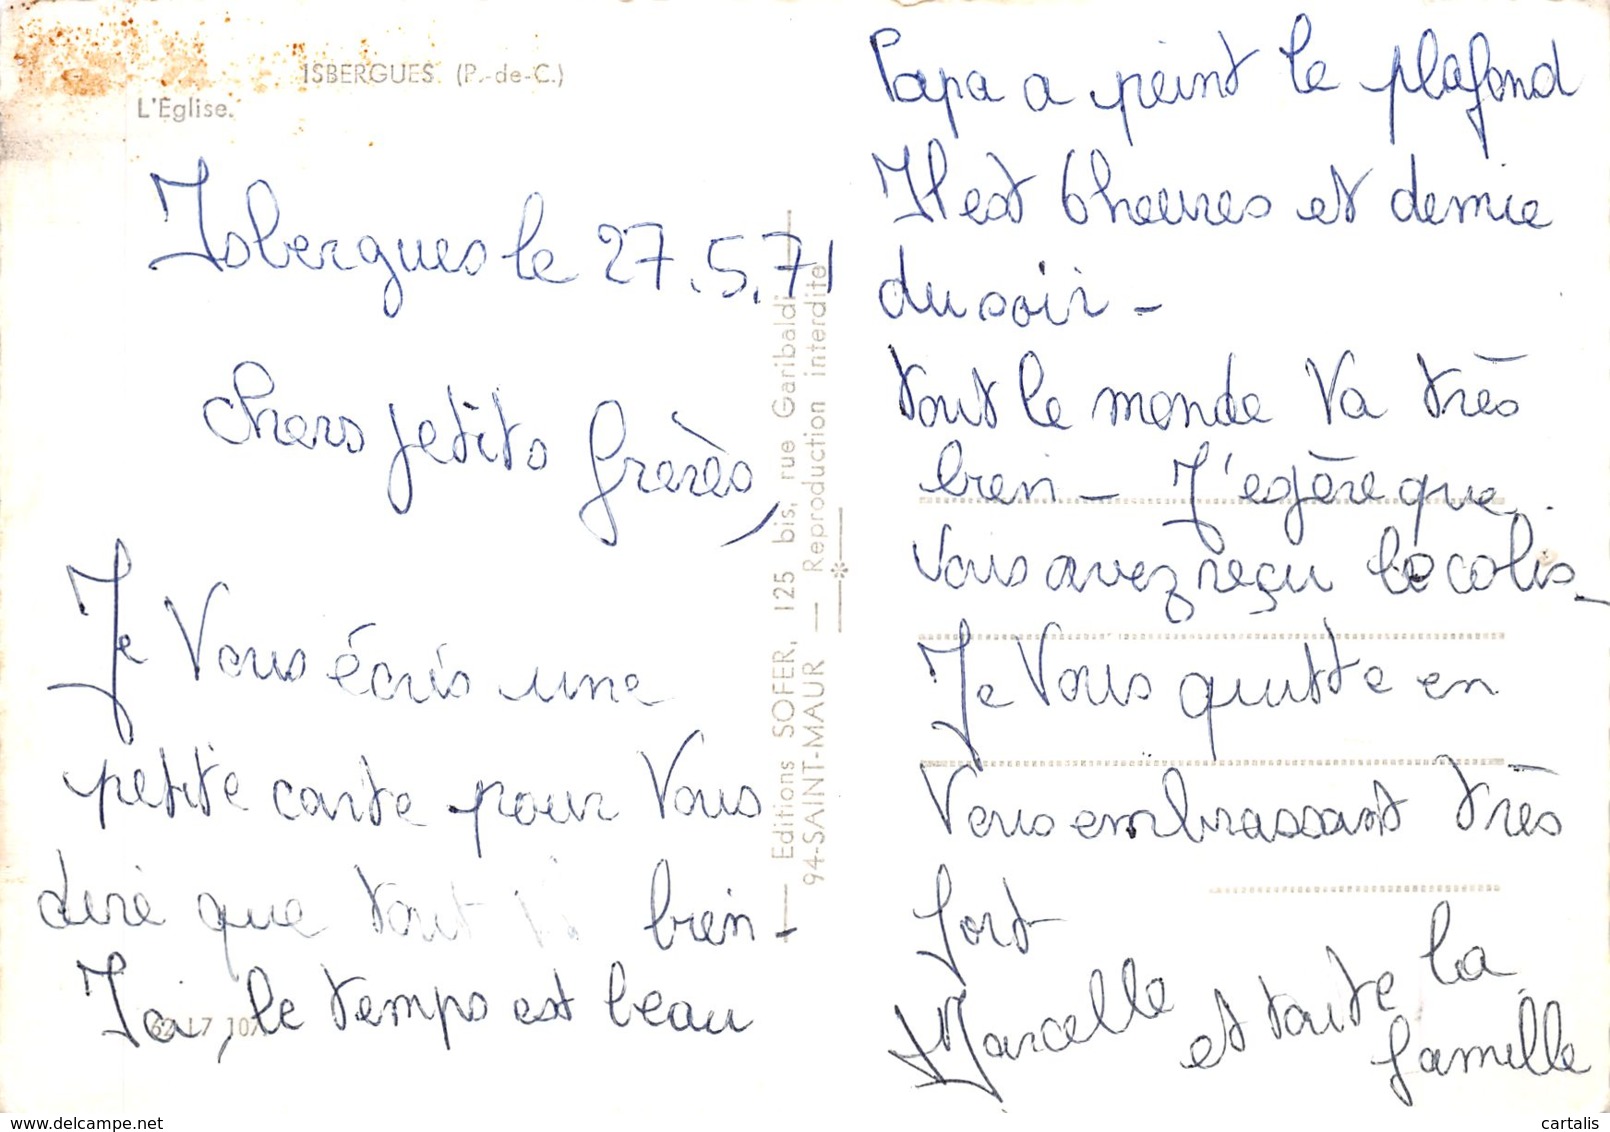 ISBERGUES (P.-de-C.)
L'Eglise.
Isbergues le 27.5.71
Chers petits frères,
Je vous écris une
petite carte pour vous
dire que tout va bien -
Ici, le temps est beau
Editions SOFER, 125 bis, rue Garibaldi
94-SAINT-MAUR — Reproduction interdite
Papa a peint le plafond
Il est 6 heures et demie
du soir -
tout le monde va très
bien - J'espère que
vous avez reçu le colis -
Je vous quitte en
vous embrassant très
fort
Marcelle et toute la
famille
www.delcampe.net
cartalis